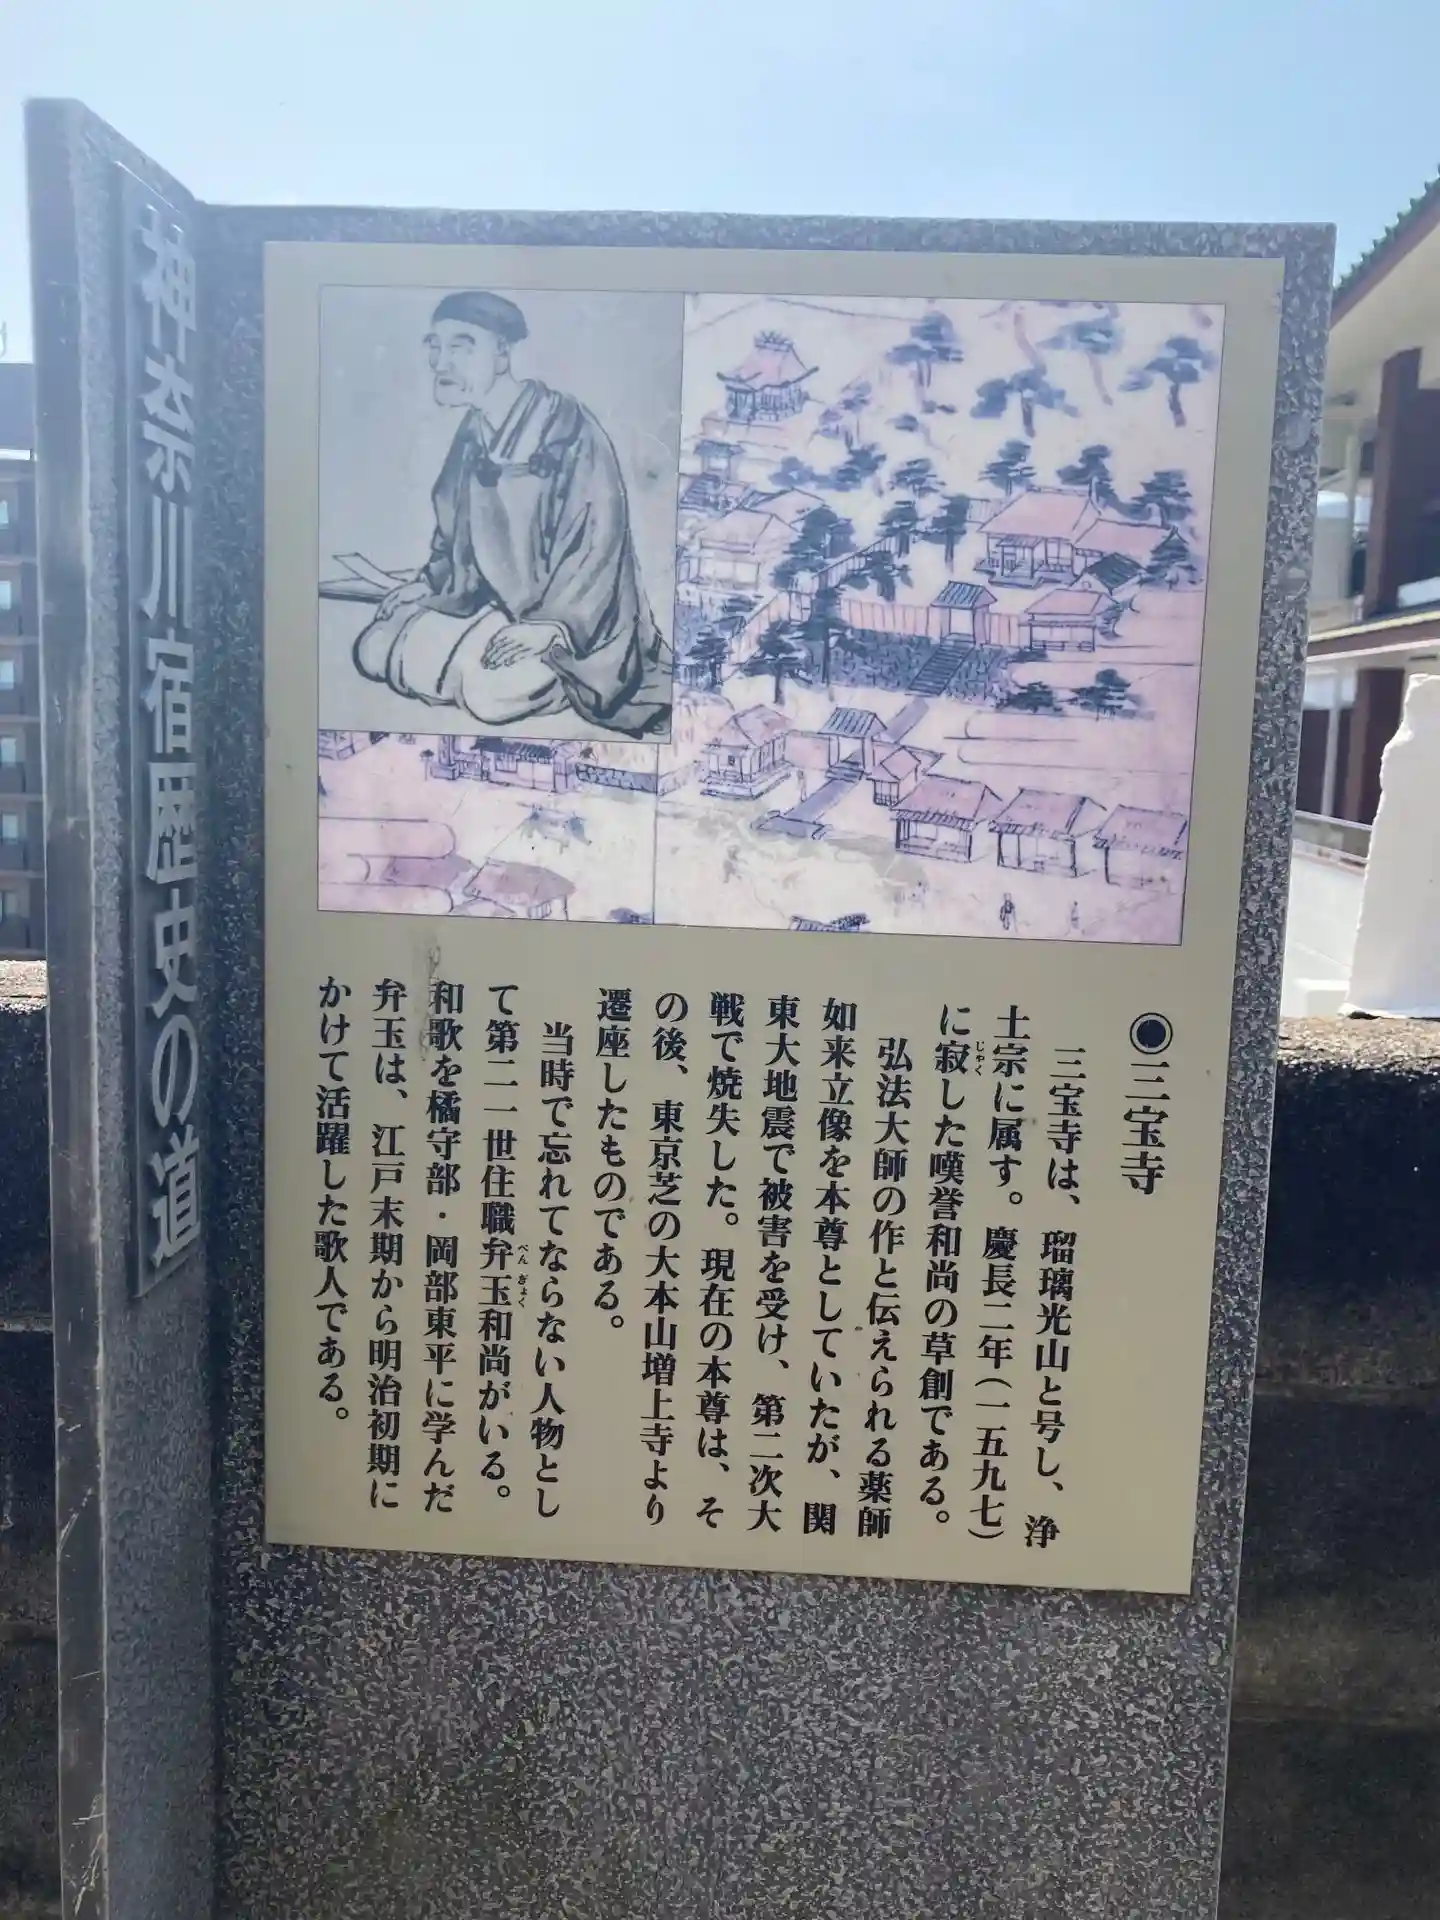 神奈川宿歴史の道
◉三宝寺
三宝寺は、瑠璃光山と号し、浄
土宗に属す。慶長二年(一五九七)
に寂した嘆誉和尚の草創である。
じゃく
弘法大師の作と伝えられる薬師
如来立像を本尊としていたが、関
東大地震で被害を受け、第二次大
戦で焼失した。現在の本尊は、そ
の後、東京芝の大本山増上寺より
遷座したものである。
当時で忘れてならない人物とし
て第二一世住職弁玉和尚がいる。
べんぎょく
和歌を橘守部・岡部東平に学んだ
弁玉は、江戸末期から明治初期に
かけて活躍した歌人である。